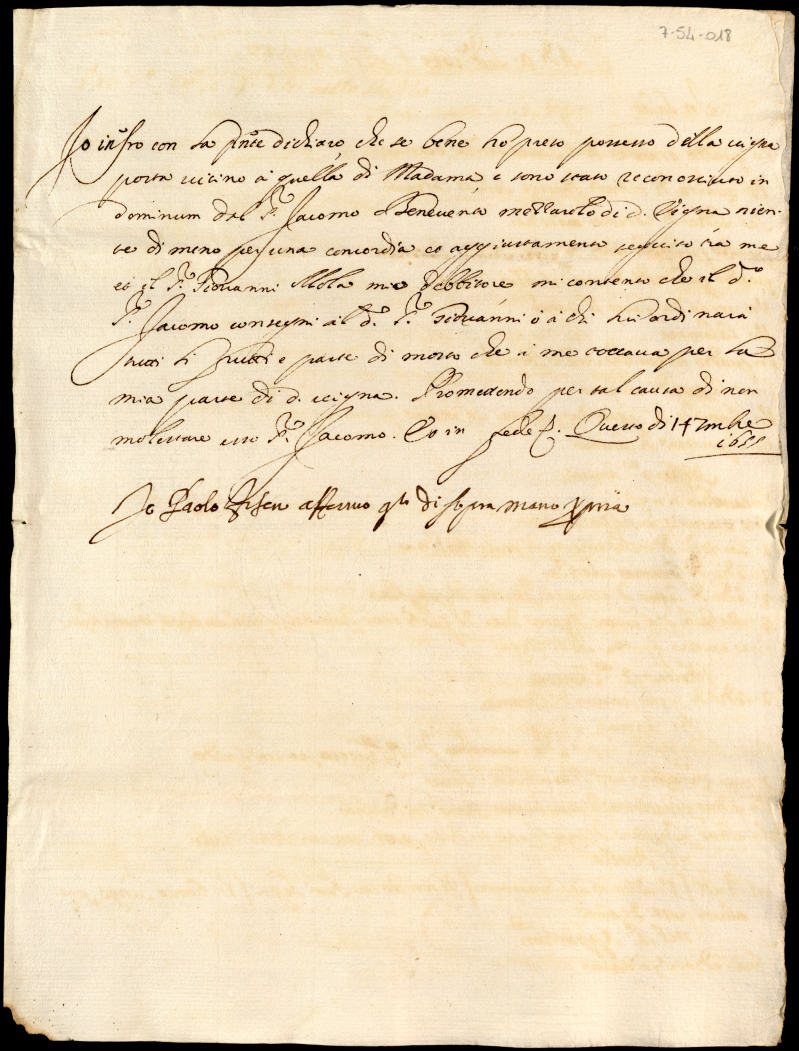 7-54-018
Io infro con la pnte dichiaro che se bene ho preso possesso della vigna
posta vicino à quella di Madama e sono stato reconosciuto in
dominum dal Sr. Jacomo Benevento mezzarolo di d. Vigna nien-
te di meno per una concordia et aggiustamento seguito tra me
et il Sr. Giovanni Mola mio debbitore mi contento che il do.
Sr. Jacomo consegni al do. Sr. Giovanni ò à chi lui ordinarà
tutti li frutti e parte di mosto che à me toccava per la
mia parte di d. vigna. Promettendo per tal causa di non
molestare esso Sr. Jacomo. Et in fede Questo dì 14 7mbre
1655
Io Paolo affermo qto di sopra mano ppria